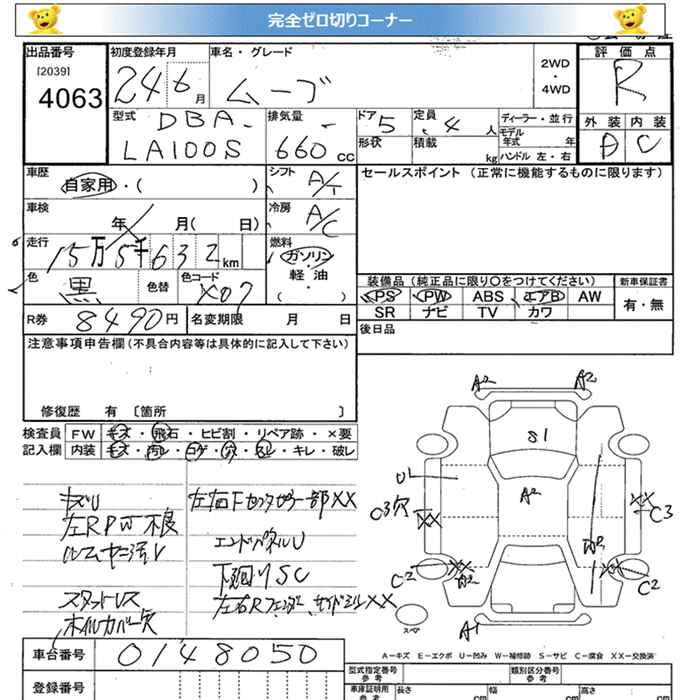 完全ゼロ切りコーナー
出品番号
[2039]
4063
初度登録年月
24 6月
車名・グレード
ムーブ
2WD
・
4WD
評価点
R
型式
DBA-
LA100S
排気量
660 cc
ドア 5
形状
定員 4 人
積載 kg
ディーラー・並行
モデル年式 年
ハンドル 左・右
外装 内装
D C
車歴
自家用・( )
シフト A/T
セールスポイント (正常に機能するものに限ります)
車検
年 月( 日)
冷房 A/C
走行
15万5千632km
燃料
ガソリン
軽・油
・( )
色 黒
色替
色コード X07
装備品 (純正品に限り〇をつけてください)
新車保証書
PS PW ABS エアB AW
SR ナビ TV カワ
有・無
R券 8490円
名変期限 月 日
後日品
注意事項申告欄(不具合内容等は具体的に記入して下さい)
修復歴 有 〔箇所 〕
検査員 FW キズ・飛石・ヒビ割・リペア跡・×要
記入欄 内装 キズ・汚レ・コゲ・穴・スレ・キレ・破レ
A2 A2
S1
A2
U1
C3穴
XX
XX
C3
A2
C2 XX A2
XX C2
A1
スペア
キズU
左RPW不良
ルームヤニ汚レ
スタットレス
ホイルカバー欠
左右Fセンタピラー一部XX
エンドパネルU
下廻りSC
左右Rフェンダー、サイドシルXX
A－キズ E－エクボ U－凹み W－補修跡 S－サビ C－腐食 XX－交換済
車台番号 0148050
登録番号
型式指定番号
参考
類別区分番号
参考
車庫証明用
参考
長さ cm
幅 cm
高さ cm